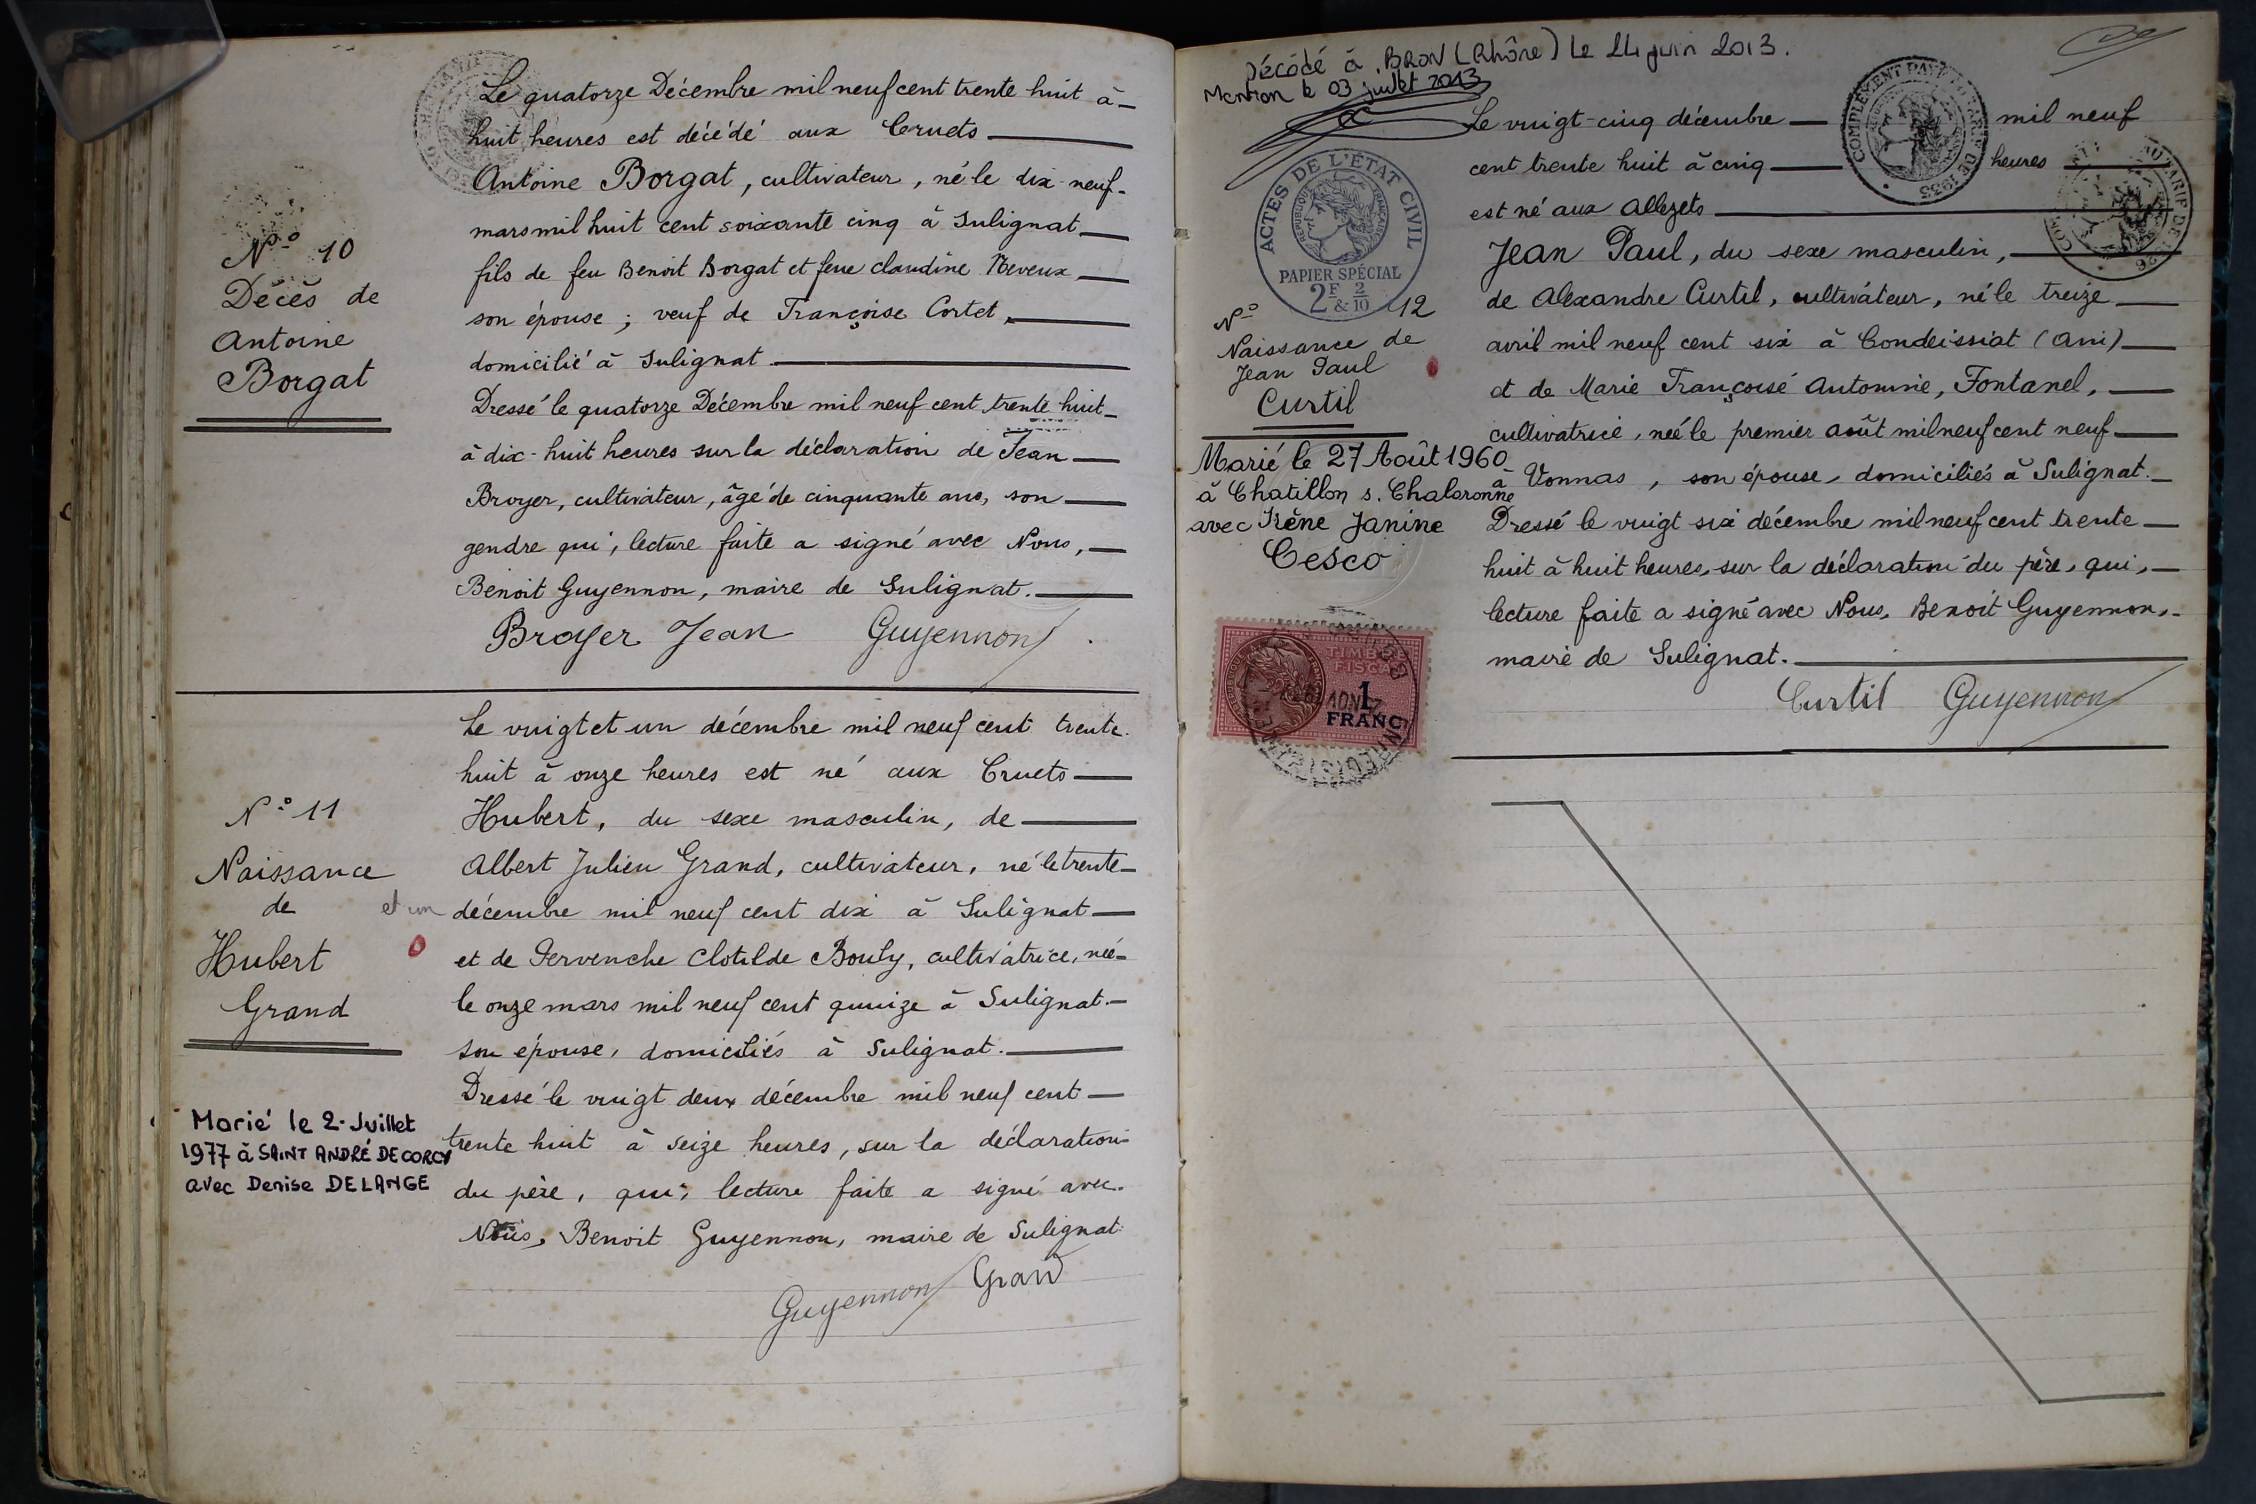 N° 10
Décès de
Antoine
Borgat
Le quatorze Décembre mil neuf cent trente huit à
huit heures est décédé aux Cruets
Antoine Borgat, cultivateur, né le dix neuf
mars mil huit cent soixante cinq à Sulignat
fils de feu Benoit Borgat et feue claudine Neveux
son épouse ; veuf de Françoise Cortet,
domicilié à Sulignat
Dressé le quatorze Décembre mil neuf cent trente huit
à dix-huit heures sur la déclaration de Jean
Broyer, cultivateur, âgé de cinquante ans, son
gendre qui, lecture faite a signé avec Nous,
Benoit Guyennon, maire de Sulignat.
Broyer Jean Guyennon
N° 11
Naissance
de
Hubert
Grand
Marié le 2 Juillet
1977 à SAINT ANDRÉ DE CORCY
avec Denise DELANGE
Le vingt et un décembre mil neuf cent trente
huit à onze heures est né aux Cruets
Hubert, du sexe masculin, de
Albert Julien Grand, cultivateur, né le trente
et un décembre mil neuf cent dix à Sulignat
et de Pervenche Clotilde Bouly, cultivatrice, née
le onze mars mil neuf cent quinze à Sulignat.
son épouse, domiciliés à Sulignat.
Dressé le vingt deux décembre mil neuf cent
trente huit à seize heures, sur la déclaration
du père, qui, lecture faite a signé avec
Nous, Benoit Guyennon, maire de Sulignat
Guyennon Grand
Décédé à BRON (Rhône) le 24 juin 2013.
Mention le 03 juillet 2013
ACTES DE L'ÉTAT CIVIL
RÉPUBLIQUE FRANÇAISE
PAPIER SPÉCIAL
2F & 2/10
N° 12
Naissance de
Jean Paul
Curtil
Marié le 27 Août 1960
à Chatillon s. Chalaronne
avec Irène Janine
Cesco
TIMBRE
FISCAL
1
FRANC
COMPLÉMENT PAYÉ TARIF DE 1935
Le vingt-cinq décembre mil neuf
cent trente huit à cinq heures
est né aux Allezets
Jean Paul, du sexe masculin,
de Alexandre Curtil, cultivateur, né le treize
avril mil neuf cent six à Condeissiat (Ain)
et de Marie Françoise Antonnie, Fontanel,
cultivatrice, née le premier août mil neuf cent neuf
à Vonnas, son épouse, domiciliés à Sulignat.
Dressé le vingt six décembre mil neuf cent trente
huit à huit heures, sur la déclaration du père, qui,
lecture faite a signé avec Nous, Benoit Guyennon,
maire de Sulignat.
Curtil Guyennon